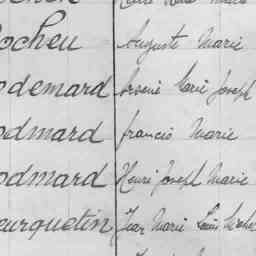 ocheu Auguste Marie
odemard Arsène Marie Joseph
odmard francis Marie
odmard Henri Joseph Marie
ourquetin Jean Marie Louis